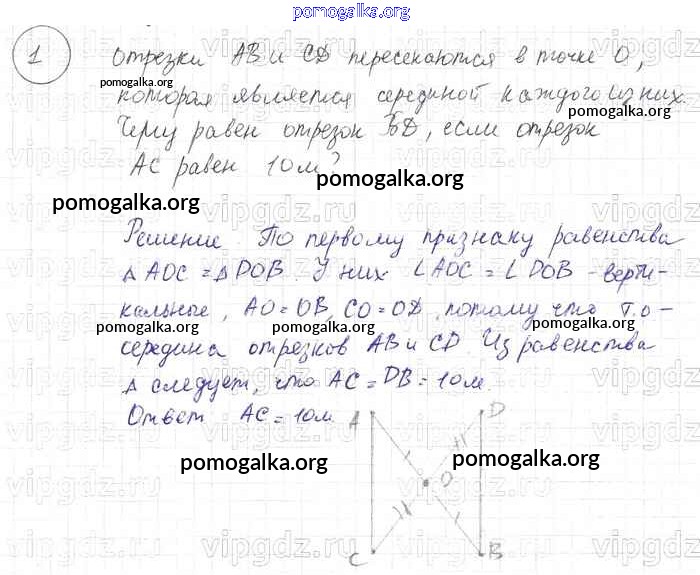 pomogalka.org
1 отрезки AB и CD пересекаются в точке O,
pomogalka.org
которая является серединой каждого из них.
pomogalka.org
Чему равен отрезок BD, если отрезок
AC равен 10м?
pomogalka.org
pomogalka.org
vipgdz.ru vipgdz.ru vipgdz.ru
Решение. По первому признаку равенства
△ AOC = △ DOB. У них ∠AOC = ∠DOB - верти-
кальные, AO = OB, CO = OD, потому что т.O-
pomogalka.org pomogalka.org
середина отрезков AB и CD. Из равенства
△ следует, что AC = DB = 10м.
Ответ: AC = 10м.
A D
pomogalka.org pomogalka.org
O
C B